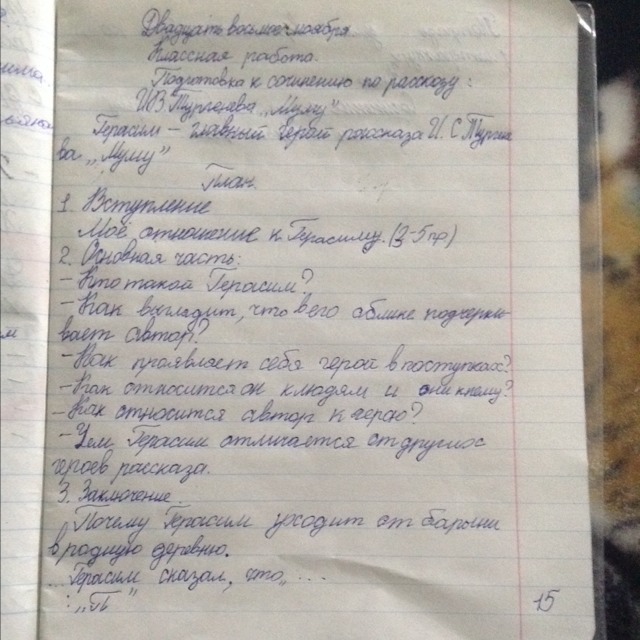 Двадцать восьмое ноября
Классная работа.
Подготовка к сочинению по рассказу:
И.В Тургенева „Муму"
Герасим – главный герой рассказа И. С Турге
ва „Муму"
План.
1. Вступление
Моё отношение к Герасиму. (3-5 пр)
2. Основная часть:
- Кто такой Герасим?
- Как выглядит, что в его облике подчерки-
вает автор?
- Как проявляет себя герой в поступках?
- Как относится он к людям и они к нему?
- Как относится автор к герою?
- Чем Герасим отличается от других
героев рассказа.
3. Заключение.
Почему Герасим уходит от барыни
в родную деревню.
Герасим сказал, что, ...
: „П"
15